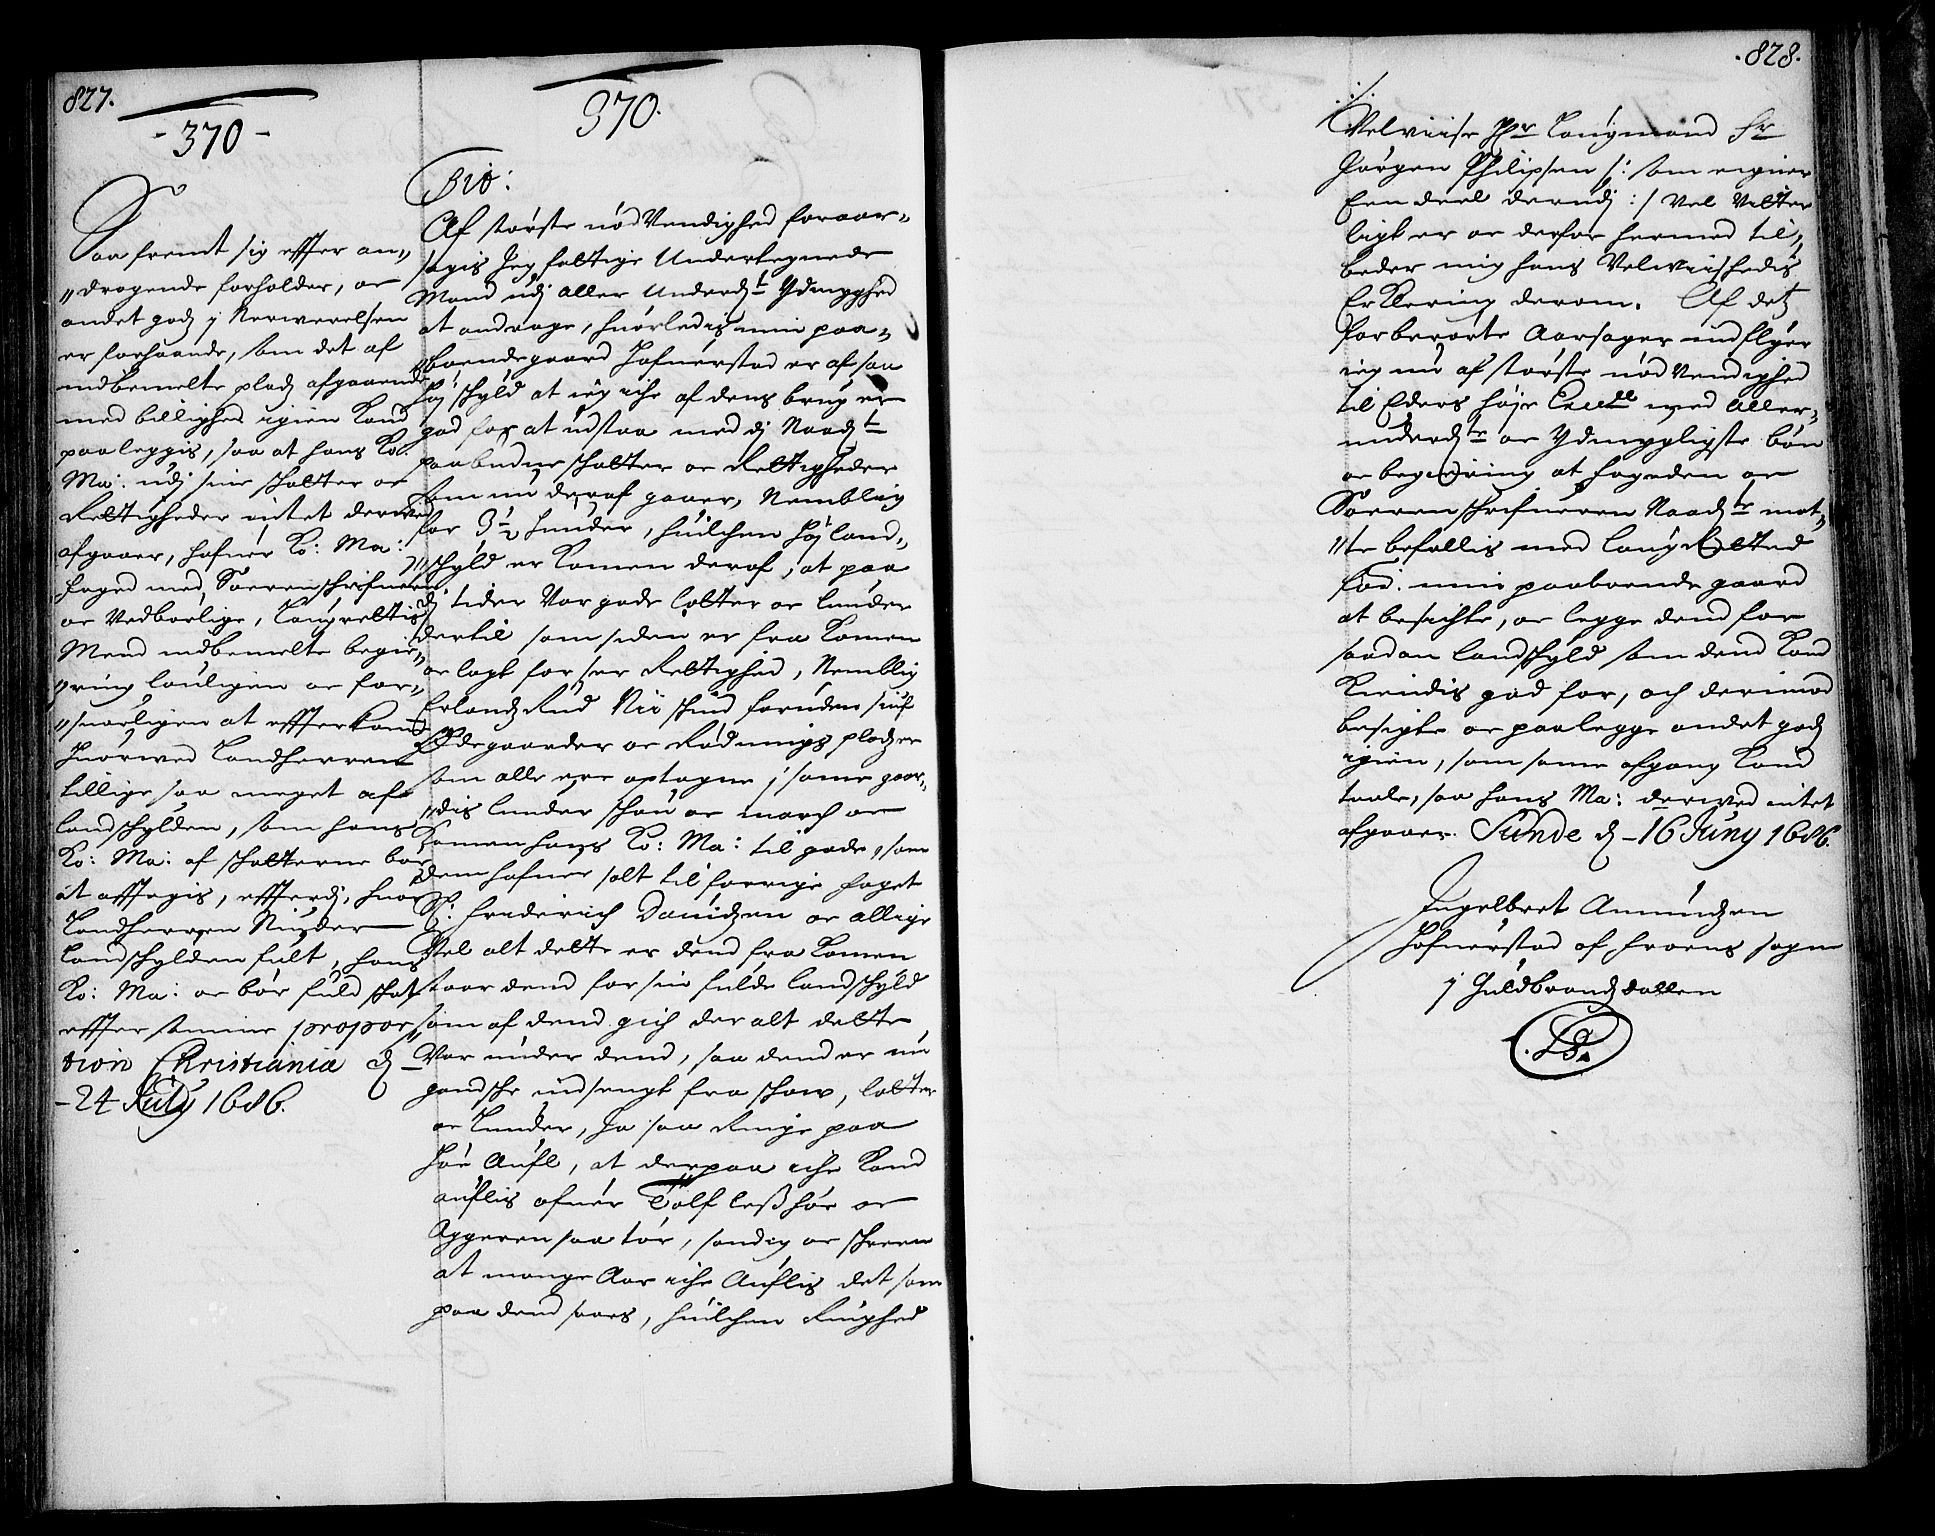 827.
-370-
Saa fremt sig effter an-
dragende forholder, oc
andet godz j Nerwerelsen
er forhaande, som det af
indbemelte pladz afgaaende
med billighed igien Kand
paaleggis, saa at hans Ko:
Ma: udj sine schatter oc
Rettigheder intet derved
afgaaer, hafuer Ko: Ma:
foged med Sorenschrifueren
oc Vedbørlige, Laugrettis
Mend indbemelte begie-
ring louligen oc for-
suarligen at effterkomme
huorved Landherren
tillige saa meget af
landschylden, som hans
Ko: Ma: af schatterne bør
at afftagis, effterdj, huor
Landherren Niuder
landschylden fult, hans
Ko: Ma: oc bør fuld schat
effter samme propor-
tion Christiania d
-24 July 1686.
370.
Af største nød Vendighed foraar-
sagis Jeg fattige Undertegnede
Mand udj aller Underd:t Ydmyghed
at andrage, huorledis min paa-
boende gaard Hofuerstad er af saa
høj schyld at jeg iche af dens brug er
god for at udstaa med dj Naad:t
paabudne schatter oc Rettigheder
som nu deraf gaaer, Nemblig
for 3½ hunder, huilchen høj land-
schyld er Komen deraf, at paa
dj tider Var gode lotter oc lunder
dertil som siden er fra Komen
oc lagt for sær Rettighed, Nemblig
Erlandz Rud Nii schind foruden siuf
Ødegaarder oc Rødnings pladzer
som alle ere optagne j same gaar-
dis lunder schou oc march oc
Komen hans Ko: Ma: til gode, som
dem hafuer solt til forrige foget
S: Friderich Davidzen oc allige
Vel alt dette er dend fra Komen
staar dend for sin fulde landschyld
som af dend gich der alt dette
Var under dend, saa dend er nu
gandsche udsengt fra schow, lotter
oc Lunder, Ja saa Ringe paa
høe Aufl, at derpaa iche Kand
auflis ofuer Tolf less høe oc
Aggeren saa tør, sandig oc schreen
at mange Aar iche Auflis det som
paa dend saaes, huilchen Ringhed
828.
Velviise Hr Laugmand Hr
Jørgen Philipsen /: som eigner
Een deel derudj :/ Vel Vitter
ligt er oc derfor hermed til-
beder mig hans Velwiisheds
Erklering derom. Af detz
forberørte Aarsager indflyer
jeg nu af største nød Vendighed
til Eders høje Excell med Aller-
underd:te oc Ydmygligste bøn
oc begiering at fogeden oc
Sorenschrifueren Naad:te mot-
te befallis med laug Retted
Foe: min paaboende gaard
at besichte, oc legge dend for
saadan landschyld som dend Kand
Kiendis god for, och derimod
besigte oc paalegge andet godz
igien, som same afgang Kand
taale, saa hans Ma: derved intet
afgaaer. Sunde d -16 Juny 1686.
Ingelbret Amundzen
Hofuerstad af Froens sogn
j Guldbrandz dallen
LS.